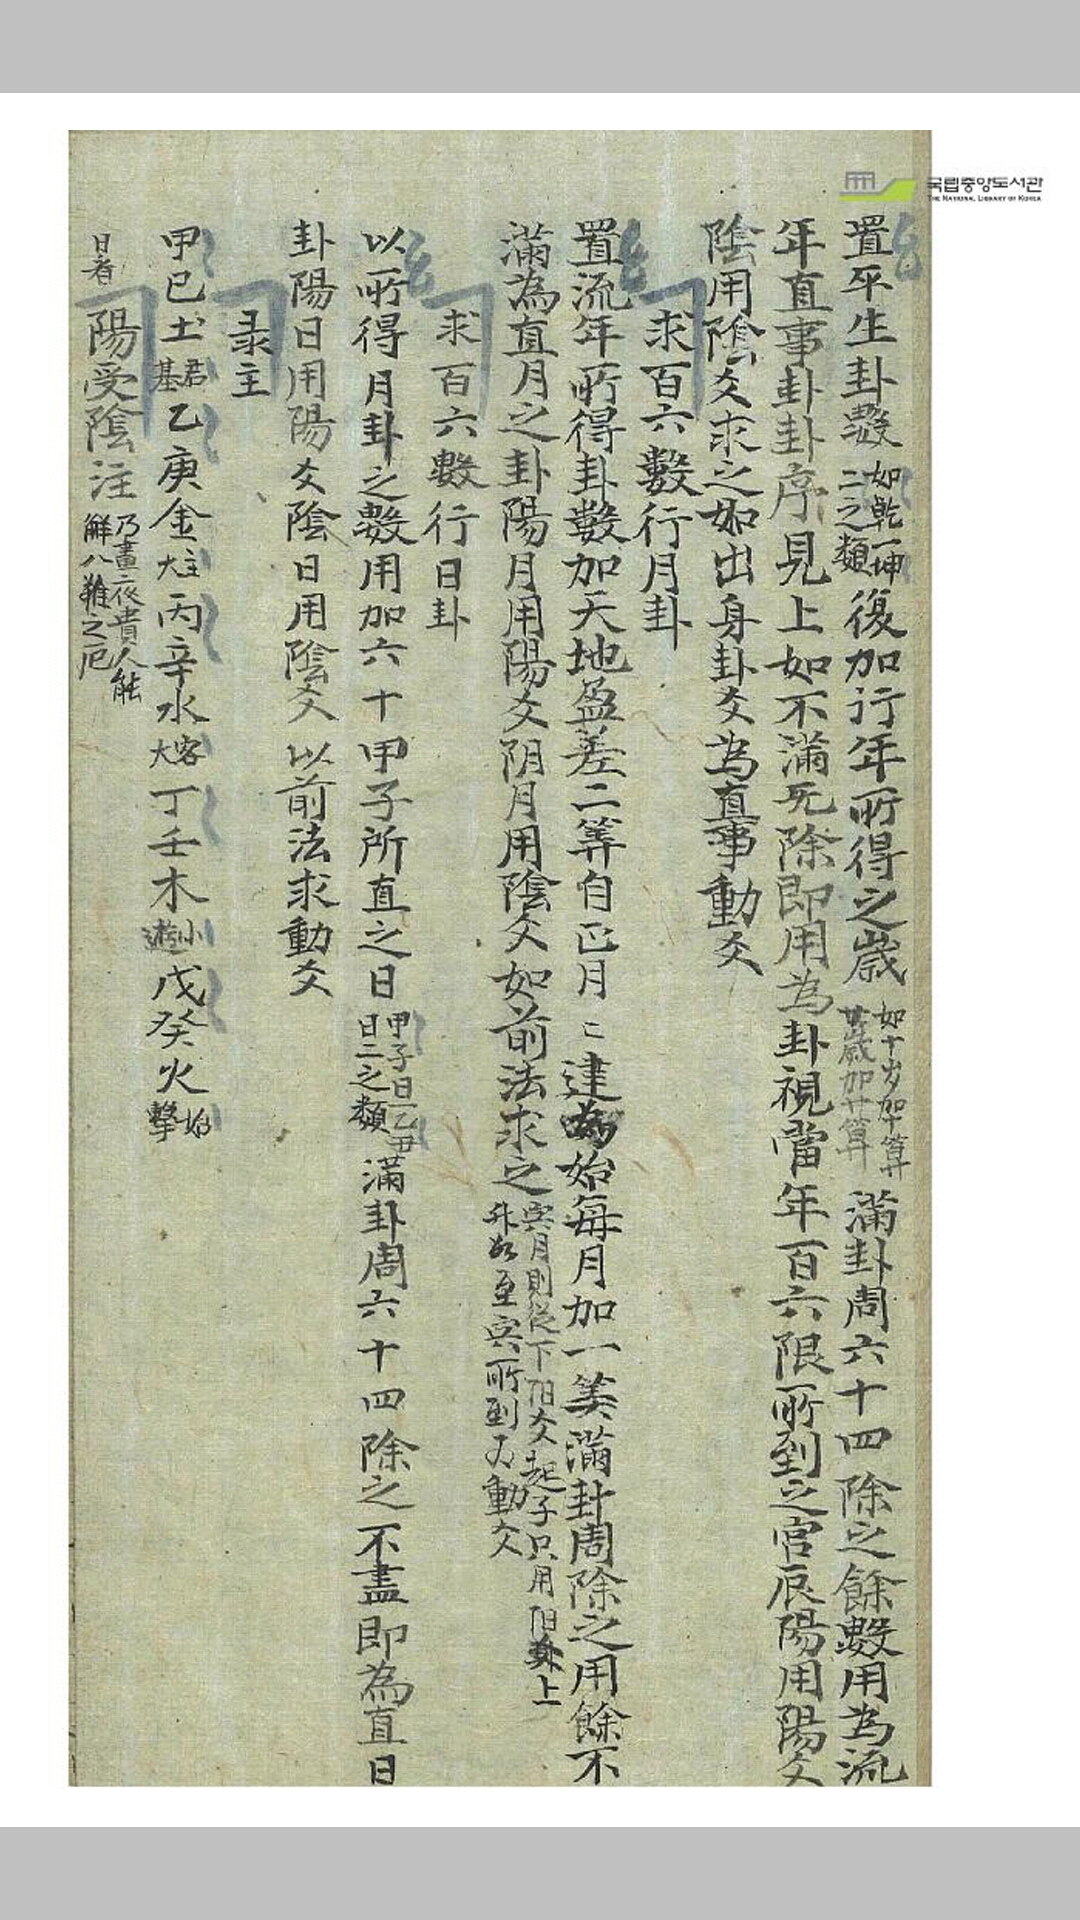 국립중앙도서관
THE NATIONAL LIBRARY OF KOREA
置平生卦數如乾一坤二之類復加行年所得之歲如十岁加十算廿歲加廿算滿卦周六十四除之餘數用為流
年直事卦卦序見上如不滿无除即用為卦視當年百六限所到之宮辰陽用陽爻
陰用陰爻求之如出身卦爻為直事動爻
求百六數行月卦
置流年所得卦數加天地盈差二筭自正月二建為始每月加一筭滿卦周除之用餘不
滿為直月之卦陽月用陽爻阴月用陰爻如前法求之寅月則從下阳爻起子只用阳爻上升數至寅所到爲動爻
求百六數行日卦
以所得月卦之數用加六十甲子所直之日甲子日一乙丑日二之類滿卦周六十四除之不盡即為直日
卦陽日用陽爻陰日用陰爻以前法求動爻
录主
甲巳土君基乙庚金主大丙辛水客大丁壬木小遊戊癸火始擊
日者陽受陰注乃晝夜貴人能解八難之厄